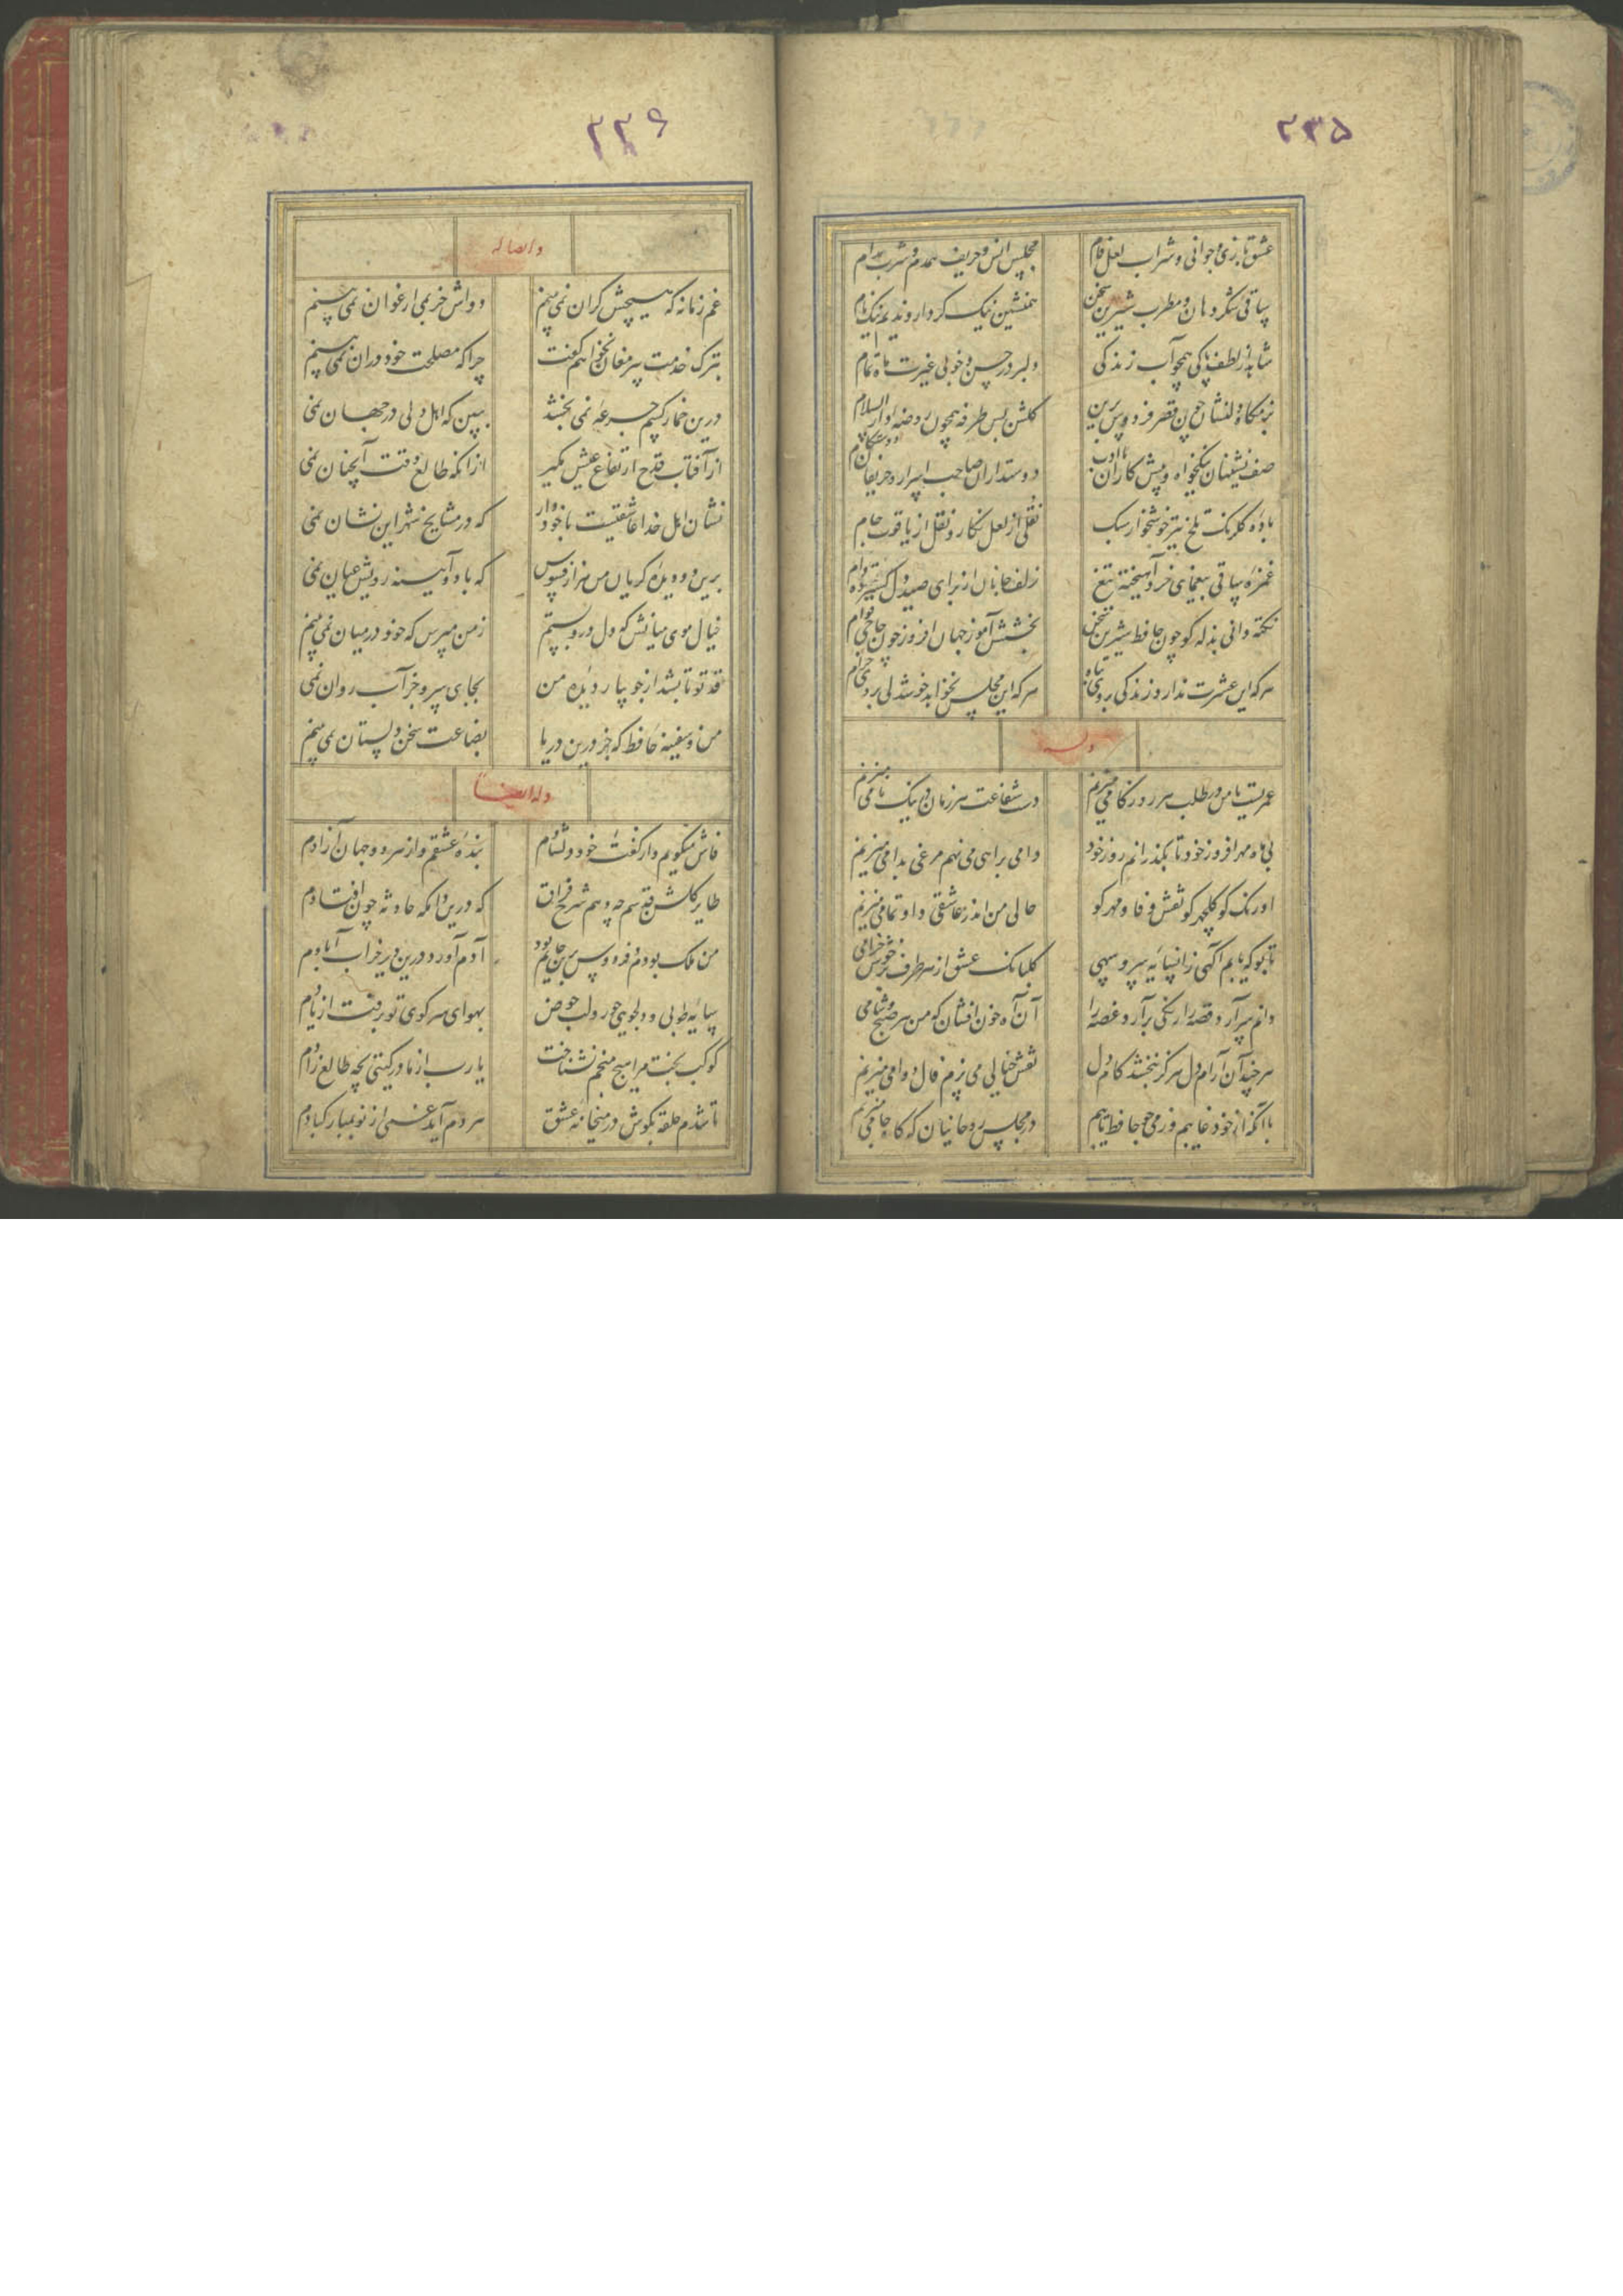 ۲۳۵
عشق بازی و جوانی و شراب لعل فام مجلس انس و حریف همدم و شرب مدام
ساقی شکر دهان و مطرب شیرین سخن همنشین نیک کردار و ندیم نیک نام
شاهد از لطف و پاکی همچو آب زندگی دلبر در حسن و خوبی غیرت ماه تمام
بزمگاه دلنشان چون قصر فردوس برین گلشن بس طرفه همچون روضه دار السلام
صف نشینان نیکخواه و پیش کاران با ادب دوستداران صاحب اسرار و حریفان دوستکام
باده گلرنگ تلخ تیز خوشخوار سبک نقلی از لعل نگار و نقل از یاقوت جام
غمزه ساقی بیغمای خرد آهیخته تیغ زلف جانان از برای صید دل گسترده دام
نکته دانی بذله گو چون حافظ شیرین سخن بخشش آموز جهان افروز چون حاجی قوام
هر که این عشرت ندارد زندگی بر وی تباه هر که این مجلس نخواهد خوشدلی بر وی حرام
وله
عمریست تا من در طلب هر روز گامی میزنم دست شفاعت هر زمان در نیک نامی میزنم
بی ماه مهر افروز خود تا بگذرانم روز خود دامی براهی می نهم مرغی بدامی میزنم
اورنگ کو گلچهر کو نقش وفا و مهر کو حالی من اندر عاشقی داو تمامی میزنم
تا بو که یابم آگهی از سایه سرو سهی گلبانک عشق از هر طرف بر خوش خرامی
دانم سر آرد قصه را رنگی بر آرد غصه را آن آه خون افشان که من هر صبح و شامی
هر چند آن آرام دل هرگز نبخشد کام دل نقش خیالی می پزم فال دوامی میزنم
با آنکه از خود غایبم و ز می چو حافظ تایبم در مجلس روحانیان که گاه جامی میزنم
۲۳۶
وایضا له
غم زمانه که هیچش کران نمی بینم دواش جز می ارغوان نمی بینم
بترک خدمت پیر مغان نخواهم گفت چرا که مصلحت خود در آن نمی بینم
درین خمار کسیم جرعه نمی بخشد ببین که اهل دلی در جهان نمی
از آفتاب قدح ارتفاع عیش بگیر از آنکه طالع وقت آنچنان نمی
نشان اهل خدا عاشقیست با خود دار که در مشایخ شهر این نشان نمی
برین دو دیده گریان من هزار افسوس که با دو آینه رویش عیان نمی
خیال موی میانش که دل درو بستم ز من مپرس که خود در میان نمی بینم
قد تو تا بشد از جویبار دیده من بجای سرو جز آب روان نمی
من و سفینه حافظ که جز درین دریا بضاعت سخن دلستان نمی بینم
وله ایضا
فاش میگویم و از گفته خود دلشادم بنده عشقم و از هر دو جهان آزادم
طایر گلشن قدسم چه دهم شرح فراق که درین دامگه حادثه چون افتادم
من ملک بودم و فردوس برین جایم بود آدم آورد درین دیر خراب آبادم
سایه طوبی و دلجویی حور و لب حوض بهوای سر کوی تو برفت از یادم
کوکب بخت مرا هیچ منجم نشناخت یا رب از مادر گیتی بچه طالع زادم
تا شدم حلقه بگوش در میخانه عشق هر دم آید غمی از نو بمبارکبادم